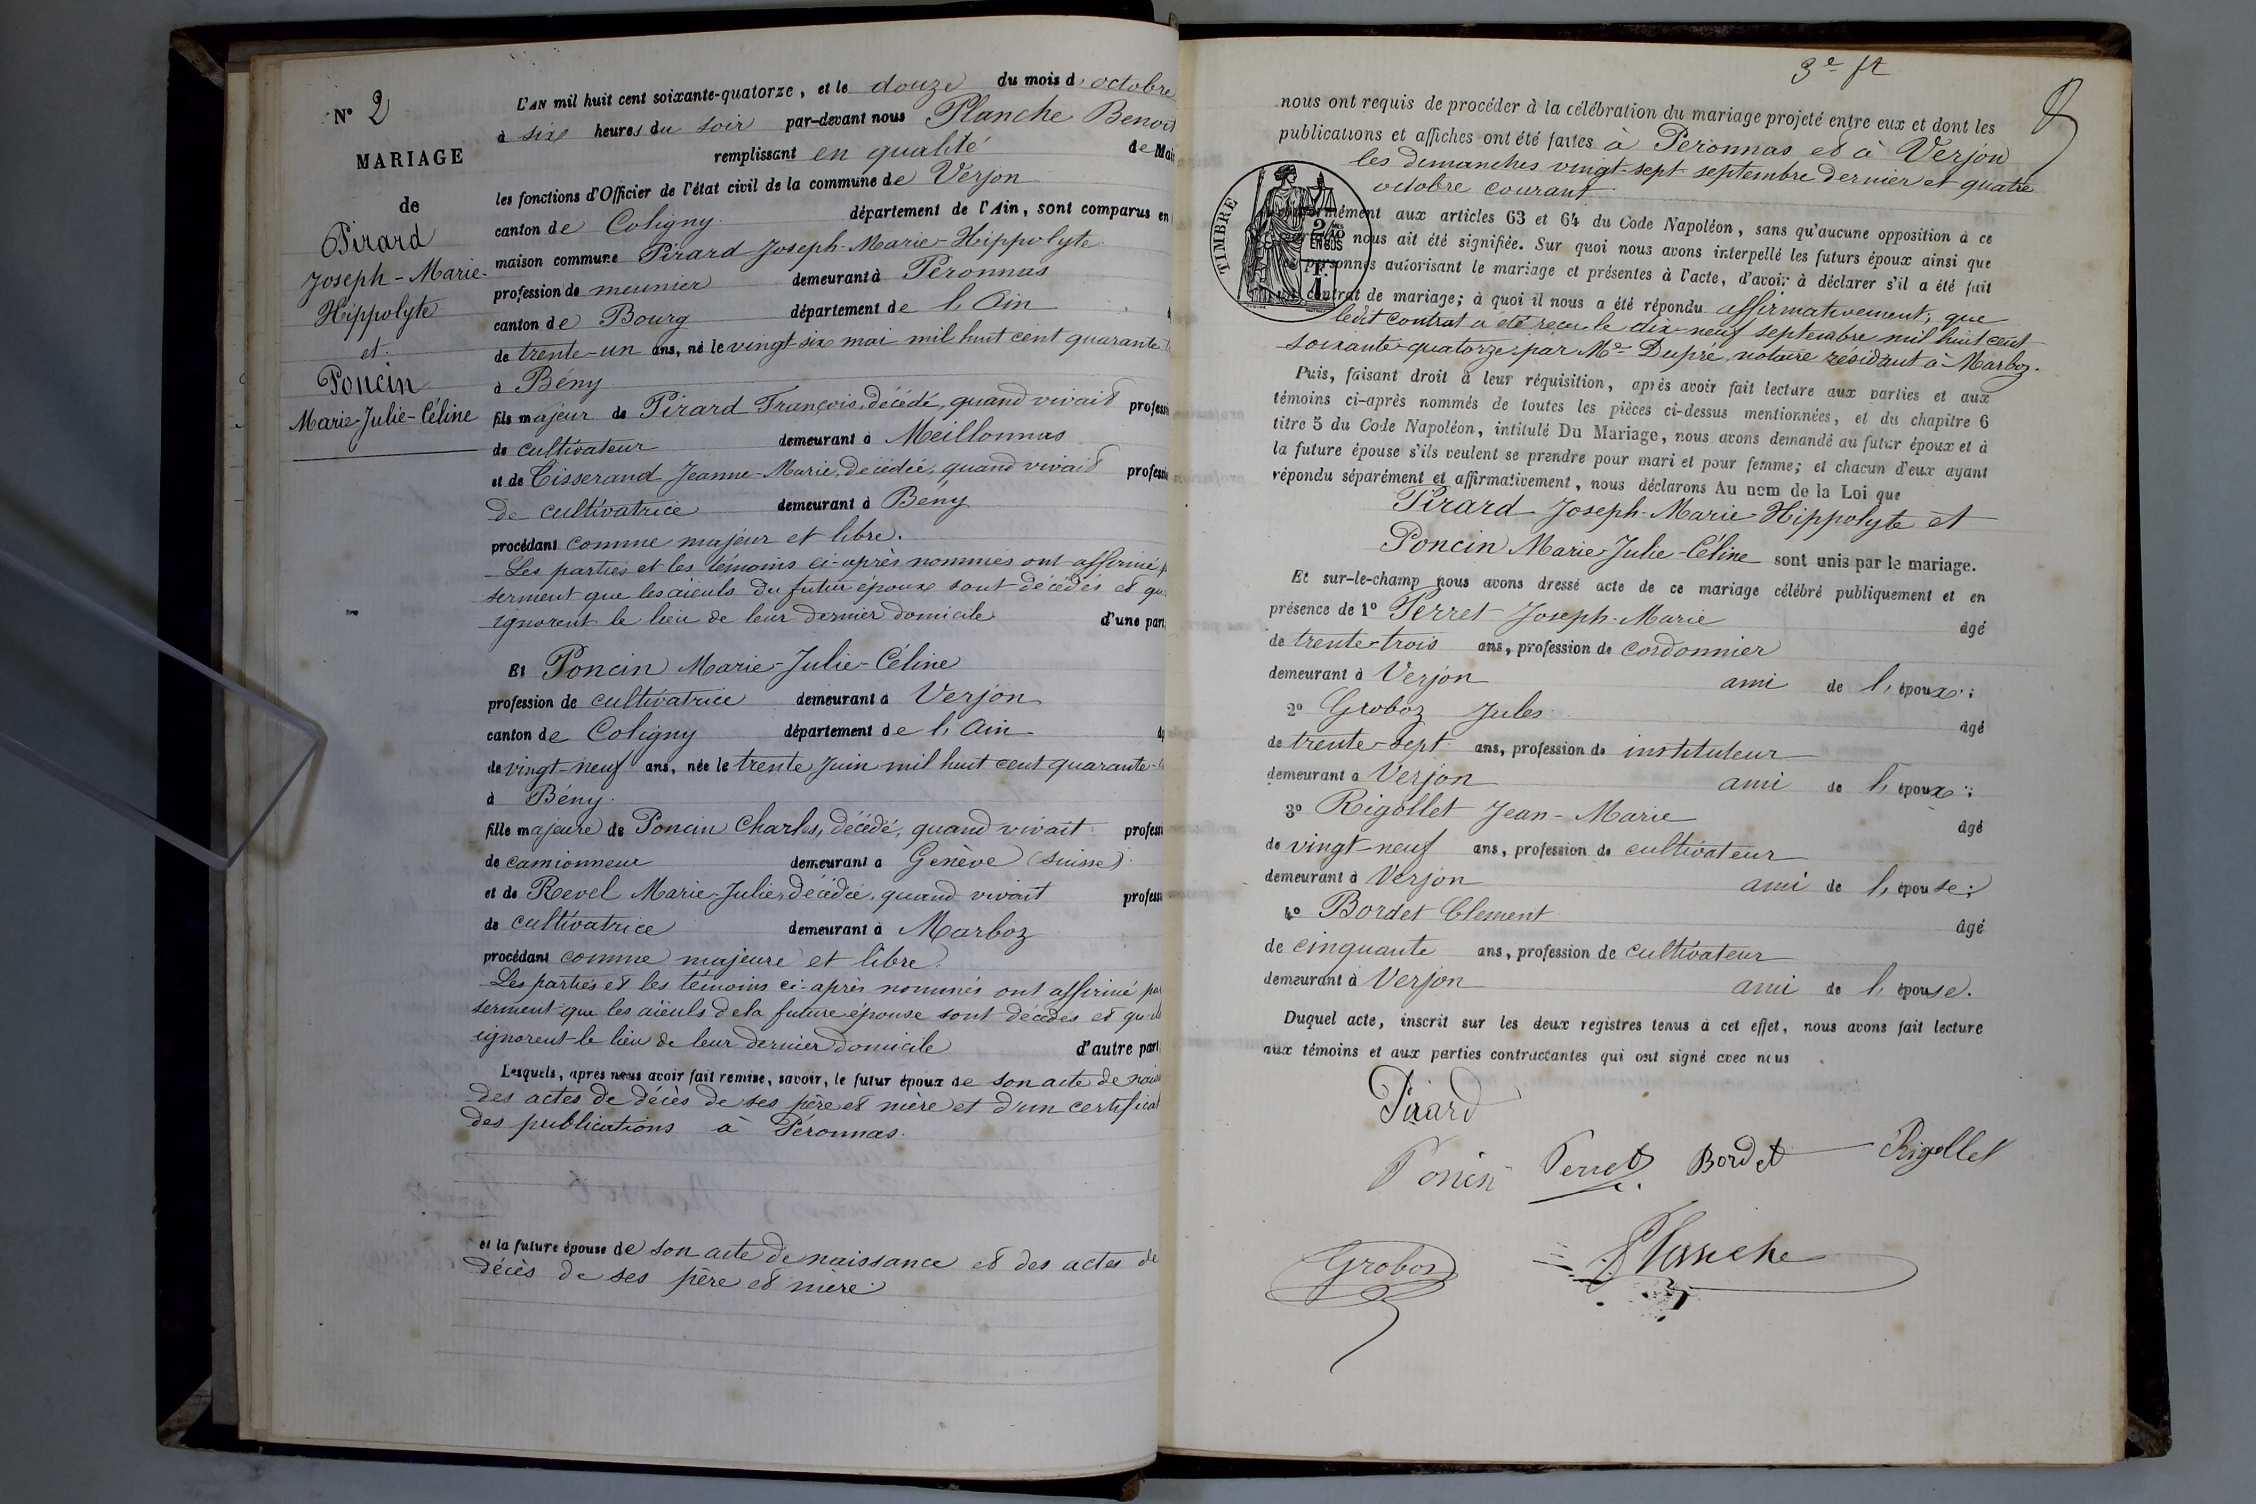 N° 2
MARIAGE
de
Pirard
Joseph-Marie-
Hippolyte
et
Poncin
Marie-Julie-Céline
L'AN mil huit cent soixante-quatorze, et le douze du mois d'octobre
à six heures du soir par-devant nous Planche Benoit
remplissant en qualité de Mai
les fonctions d'Officier de l'état civil de la commune de Verjon
canton de Coligny département de l'Ain, sont comparus en
maison commune Pirard Joseph-Marie-Hippolyte
profession de meunier demeurant à Péronnas
canton de Bourg département de l'Ain
de trente-un ans, né le vingt-six mai mil huit cent quarante
à Bény
fils majeur de Pirard François, décédé, quand vivait profess
de cultivateur demeurant à Meillonnas
et de Tisserand Jeanne-Marie, décédée, quand vivait profess
de cultivatrice demeurant à Bény
procédant comme majeur et libre.
Les parties et les témoins ci-après nommés ont affirmé
serment que les aïeuls du futur époux sont décédés et qu
ignorent le lieu de leur dernier domicile d'une part,
Et Poncin Marie-Julie-Céline
profession de cultivatrice demeurant à Verjon
canton de Coligny département de l'Ain
de vingt-neuf ans, née le trente juin mil huit cent quarante-
à Bény
fille majeure de Poncin Charles, décédé, quand vivait profess
de camionneur demeurant à Genève (Suisse)
et de Revel Marie-Julie, décédée, quand vivait profess
de cultivatrice demeurant à Marboz
procédant comme majeure et libre.
Les parties et les témoins ci-après nommés ont affirmé par
serment que les aïeuls de la future épouse sont décédés et qu'ils
ignorent le lieu de leur dernier domicile d'autre part,
Lesquels, après nous avoir fait remise, savoir, le futur époux de son acte de nais
des actes de décès de ses père et mère et d'un certificat
des publications à Péronnas.
et la future épouse de son acte de naissance et des actes de
décès de ses père et mère.
3e ft
nous ont requis de procéder à la célébration du mariage projeté entre eux et dont les
publications et affiches ont été faites à Péronnas et à Verjon
les dimanches vingt-sept septembre dernier et quatre
octobre courant
TIMBRE
2/10
EN SUS
1 F.
conformément aux articles 63 et 64 du Code Napoléon, sans qu'aucune opposition à ce
nous ait été signifiée. Sur quoi nous avons interpellé les futurs époux ainsi que
personnes autorisant le mariage et présentes à l'acte, d'avoir à déclarer s'il a été fait
un contrat de mariage; à quoi il nous a été répondu affirmativement, que
ledit contrat a été reçu le dix-neuf septembre mil huit cent
soixante-quatorze par Me Dupré notaire résidant à Marboz.
Puis, faisant droit à leur réquisition, après avoir fait lecture aux parties et aux
témoins ci-après nommés de toutes les pièces ci-dessus mentionnées, et du chapitre 6
titre 5 du Code Napoléon, intitulé Du Mariage, nous avons demandé au futur époux et à
la future épouse s'ils veulent se prendre pour mari et pour femme; et chacun d'eux ayant
répondu séparément et affirmativement, nous déclarons Au nom de la Loi que
Pirard Joseph-Marie-Hippolyte et
Poncin Marie-Julie-Céline sont unis par le mariage.
Et sur-le-champ nous avons dressé acte de ce mariage célébré publiquement et en
présence de 1° Perret Joseph-Marie âgé
de trente-trois ans, profession de cordonnier
demeurant à Verjon ami de l'époux;
2° Groboz Jules âgé
de trente-sept ans, profession de instituteur
demeurant à Verjon ami de l'époux;
3° Rigollet Jean-Marie âgé
de vingt-neuf ans, profession de cultivateur
demeurant à Verjon ami de l'épouse;
4° Bordet Clement âgé
de cinquante ans, profession de cultivateur
demeurant à Verjon ami de l'épouse.
Duquel acte, inscrit sur les deux registres tenus à cet effet, nous avons fait lecture
aux témoins et aux parties contractantes qui ont signé avec nous
Pirard
Poncin Perret Bordet Rigollet
Groboz Planche